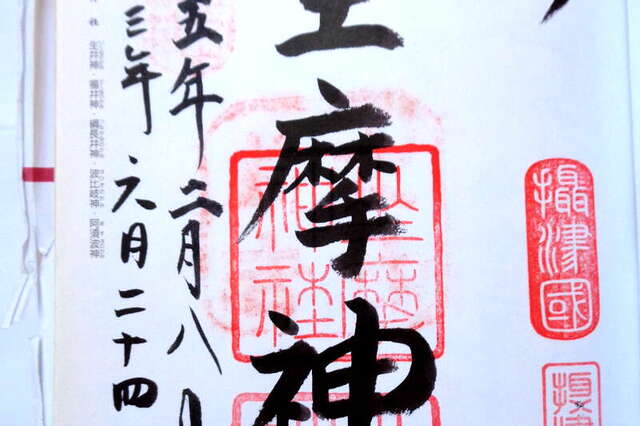 攝津國
摩神
坐摩
神社
五年 二月八
三年 六月二十四
生井神・福井神・綱長井神・波比岐神・阿須波神